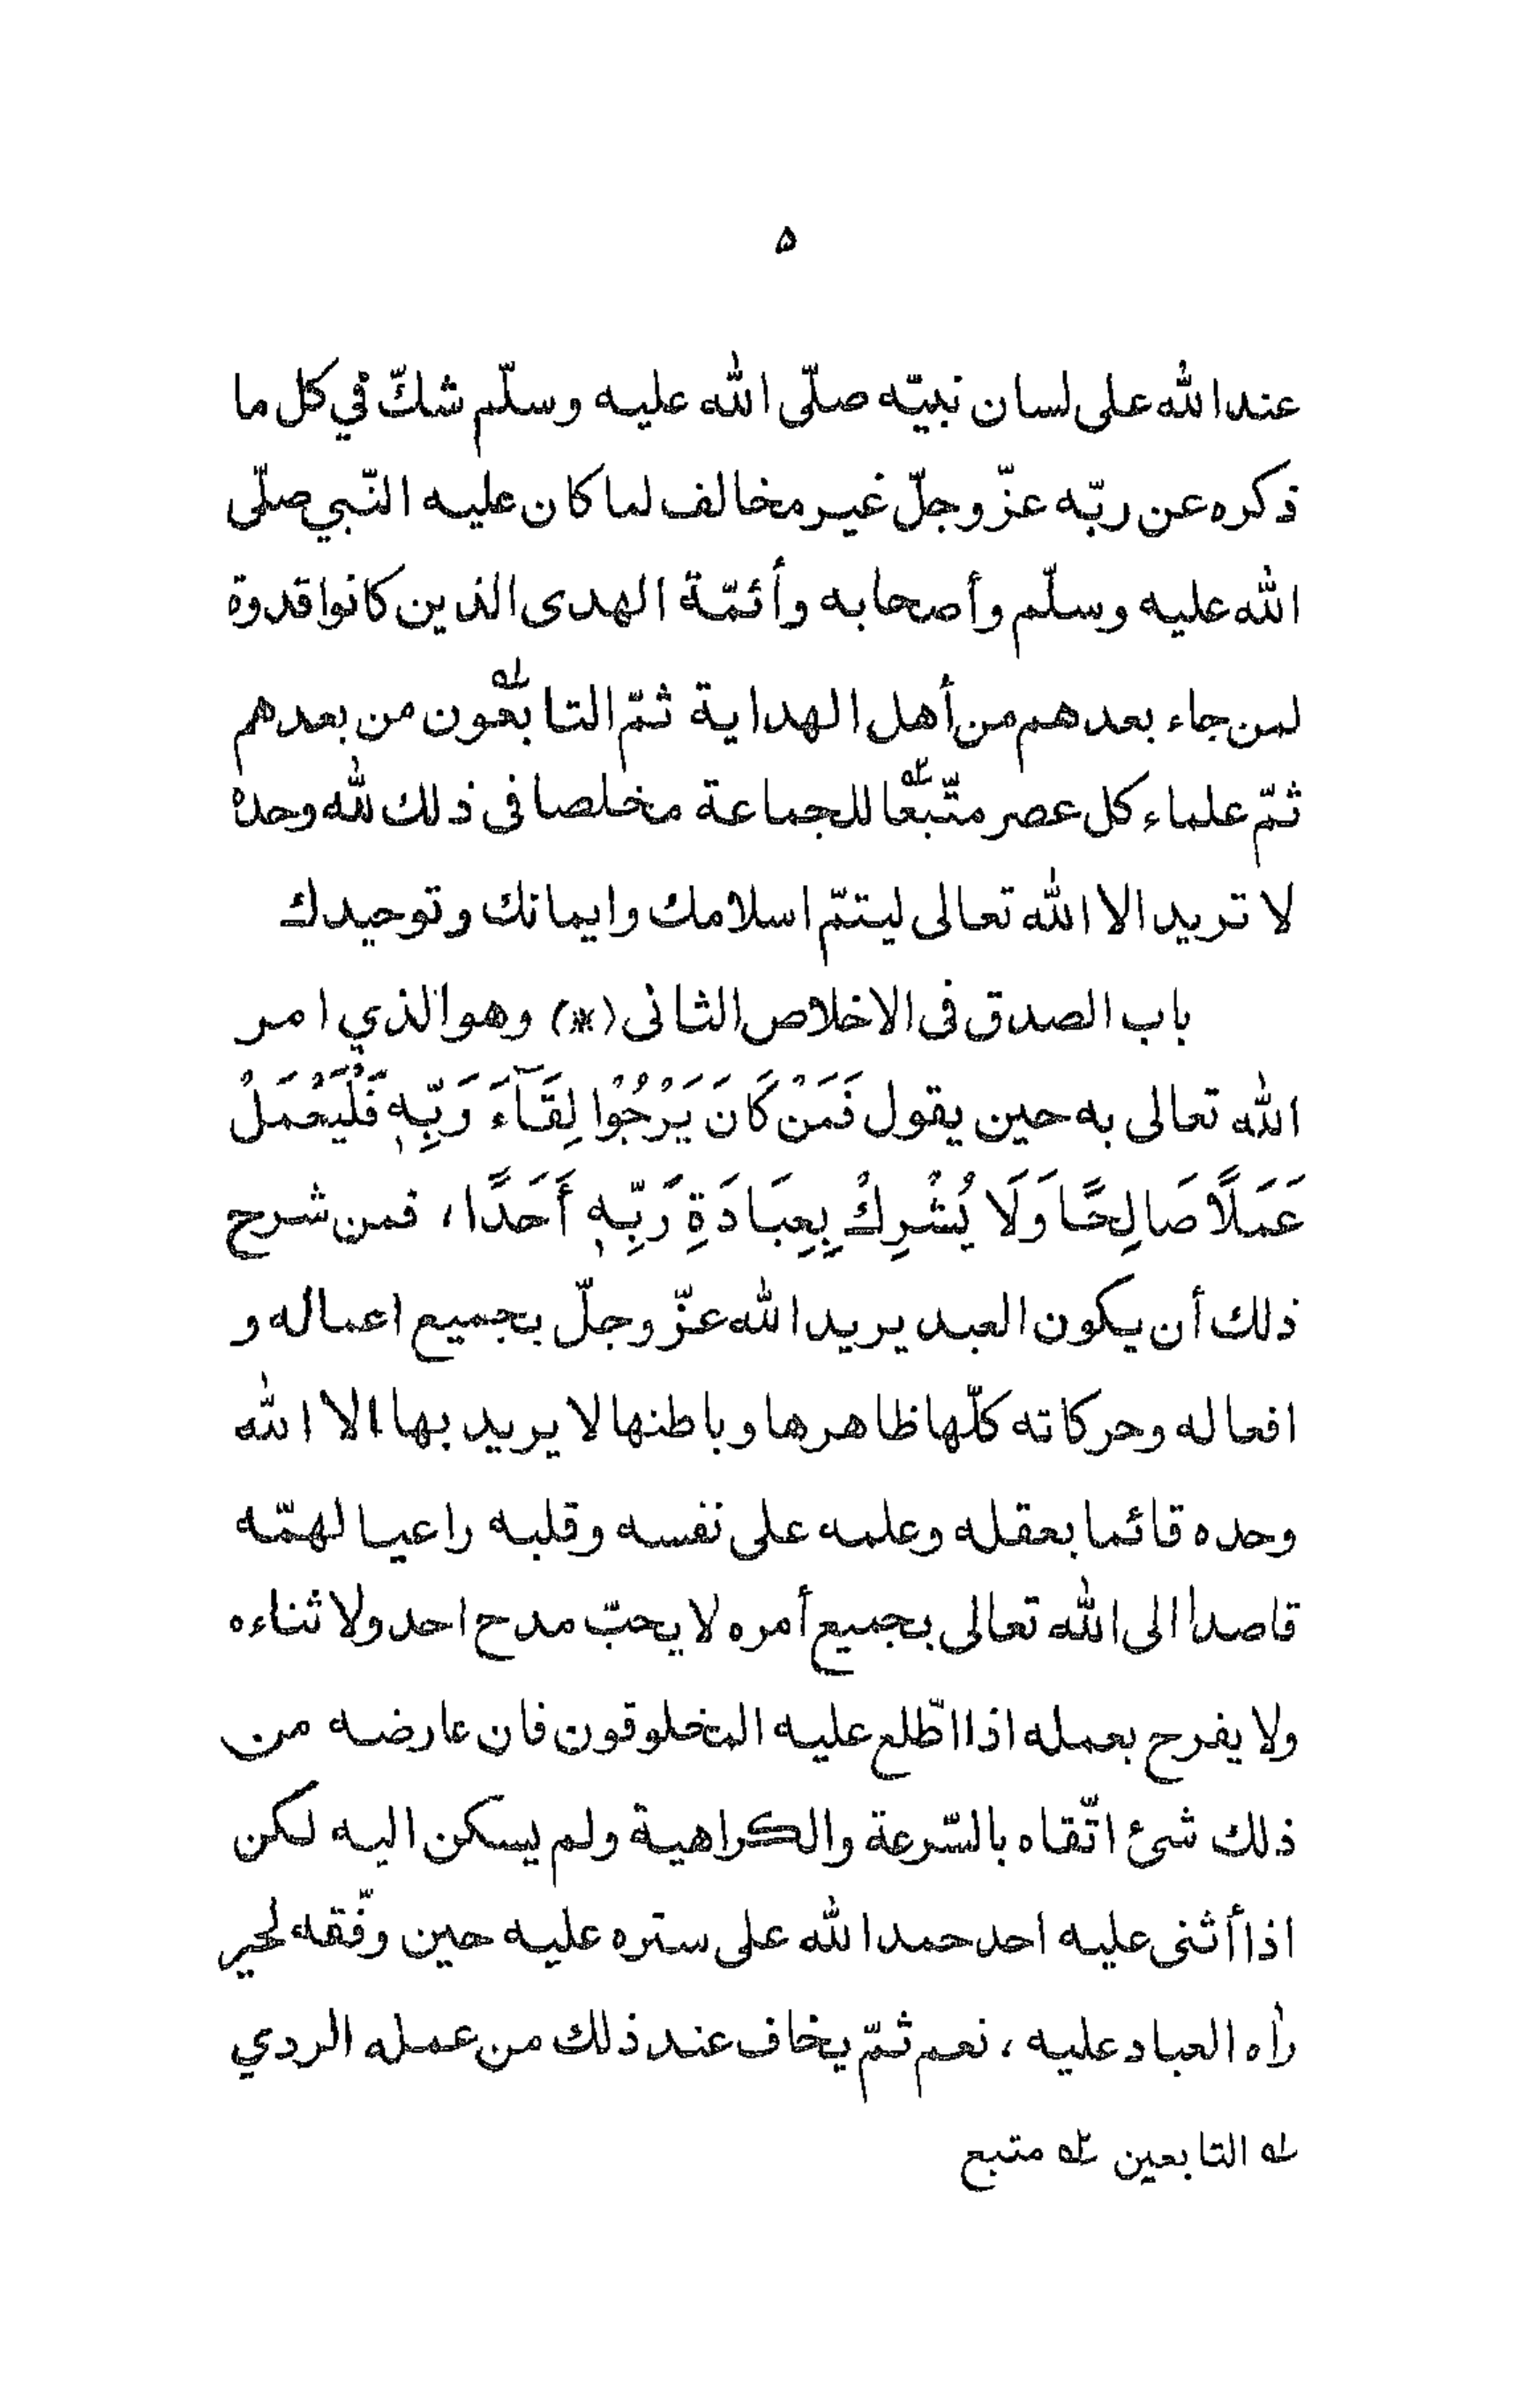 ۵
عند الله على لسان نبيّه صلّى الله عليه وسلّم شكّ في كل ما
ذكره عن ربّه عزّ وجلّ غير مخالف لما كان عليه النّبي صلّى
الله عليه وسلّم وأصحابه وأئمّة الهدى الذين كانوا قدوة
لمن جاء بعدهم من أهل الهداية ثمّ التابعون من بعدهم
ثمّ علماء كل عصر متّبعا للجماعة مخلصا فى ذلك لله وحده
لا تريد الا الله تعالى ليتمّ اسلامك وايمانك وتوحيدك
باب الصدق فى الاخلاص الثانى (*) وهو الذي امر
الله تعالى به حين يقول فَمَنْ كَانَ يَرْجُوْا لِقَآءَ رَبِّهٖ فَلْيَعْمَلْ
عَمَلًا صَالِحًا وَلَا يُشْرِكْ بِعِبَادَةِ رَبِّهٖ أَحَدًا، فمن شرح
ذلك أن يكون العبد يريد الله عزّ وجلّ بجميع اعماله و
افعاله وحركاته كلّها ظاهرها وباطنها لا يريد بها الا الله
وحده قائما بعقله وعلمه على نفسه وقلبه راعيا لهمّه
قاصدا الى الله تعالى بجميع أمره لا يحبّ مدح احد ولا ثناءه
ولا يفرح بعمله اذا اطّلع عليه المخلوقون فان عارضه من
ذلك شئ اتّقاه بالسّرعة والكراهية ولم يسكن اليه لكن
اذا أثنى عليه احد حمد الله على ستره عليه حين وفّقه لخير
رأه العباد عليه، نعم ثمّ يخاف عند ذلك من عمله الردي
له التابعين ٢ه متبع